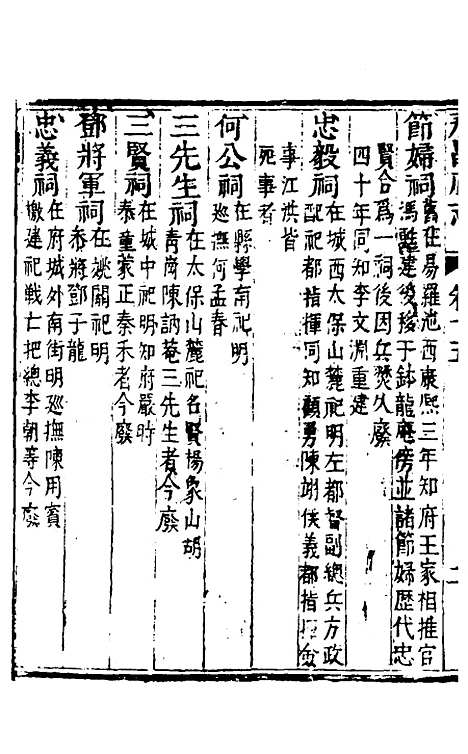 永昌府志 卷十五 二
節婦祠 舊在易羅池西康熙三年知府王家相推官
馮 建後移于鉢龍庵旁並諸節婦歷代忠
賢合爲一祠後因兵焚久廢
四十年同知李文淵重建
忠毅祠 在城西太保山麓祀明左都督副總兵方政
配祀都指揮同知顧勇陳翊侯義都指 僉
事江洪皆
死事者
何公祠 在縣學南祀明
巡撫何孟春
三先生祠 在太保山麓祀名賢楊象山胡
青崗陳訥菴三先生者今廢
三賢祠 在城中祀明知府嚴時
泰童蒙正秦禾者今廢
鄧將軍祠 在姚關祀明
恭將鄧子龍
忠義祠 在府城外南街明巡撫陳用賓
檄建祀戰亡把總李朝等今廢